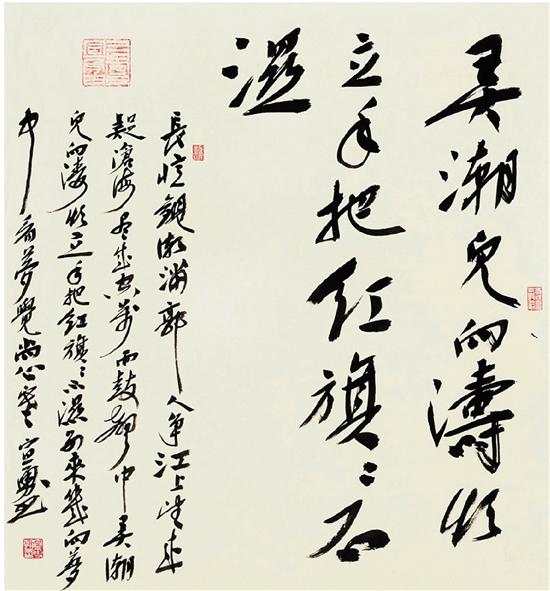 弄潮兒向濤頭
立手把紅旗〻不
濕
長憶觀潮滿郭人爭江上望來
疑滄海盡成空萬面鼓聲中弄潮
兒向濤頭立手把紅旗〻不濕別來幾向夢
中看夢覺尚心寒